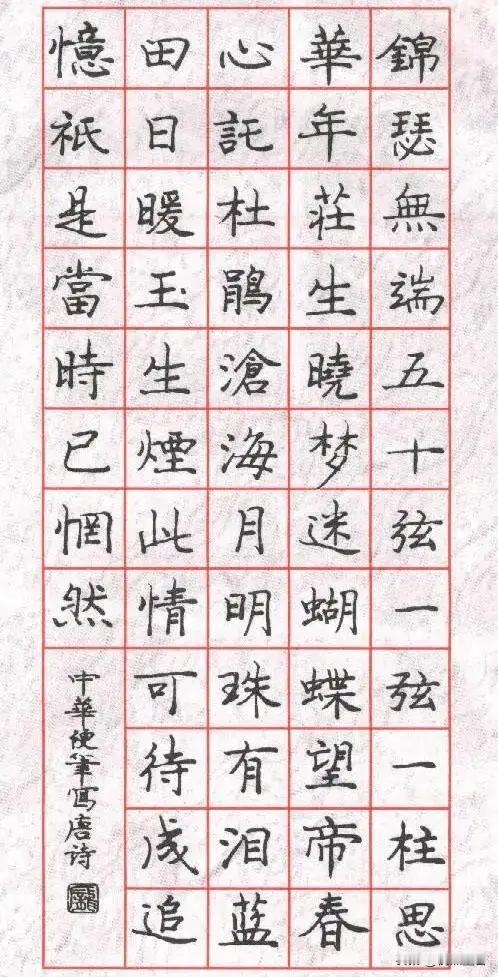 錦瑟無端五十弦一弦一柱思
華年莊生曉梦迷蝴蝶望帝春
心託杜鵑滄海月明珠有泪蓝
田日暖玉生煙此情可待成追
憶祇是當時已惘然
中華使筆寫唐诗